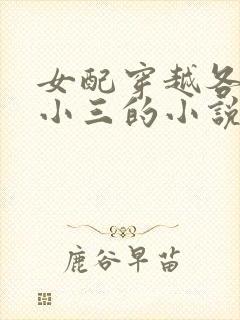 女配穿越各
小三的小說
鹿谷早苗